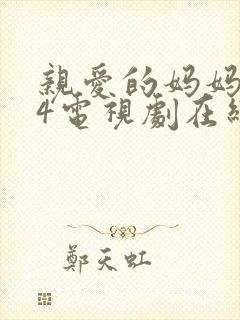 親愛的妈妈
4電視劇在線
鄭天虹